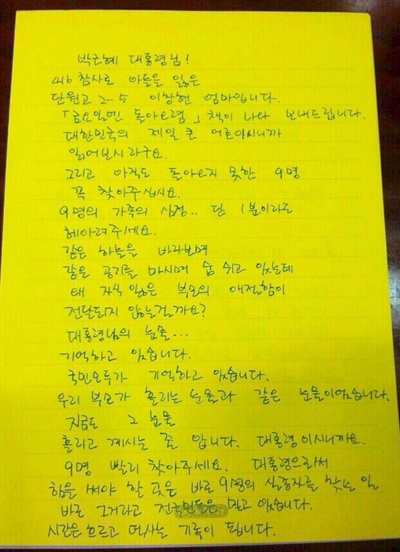 박근혜 대통령님!
4.16 참사로 아들을 잃은
단원고 2-5 이창현 엄마입니다.
「금요일엔 돌아오렴」 책이 나와 보내드립니다.
대한민국의 제일 큰 어른이시니까
읽어보시라구요.
그리고 아직도 돌아오지 못한 9명
꼭 찾아주십시요.
9명의 가족의 심정.. 단 1분이라도
헤아려주세요.
같은 하늘을 바라보며
같은 공기를 마시며 숨 쉬고 있는데
왜 자식 잃은 부모의 애절함이
전달되지 않는걸까요?
대통령님의 눈물...
기억하고 있습니다.
국민모두가 기억하고 있습니다.
우리 부모가 흘리는 눈물과 같은 눈물이었습니다.
지금도 그 눈물
흘리고 계시는 줄 압니다. 대통령이시니까요.
9명 빨리 찾아주세요. 대통령으로써
힘을 써야 할 곳은 바로 9명의 실종자를 찾는 일
바로 그거라고 전국민들은 믿고 있습니다.
시간은 흐르고 역사는 기록이 됩니다.